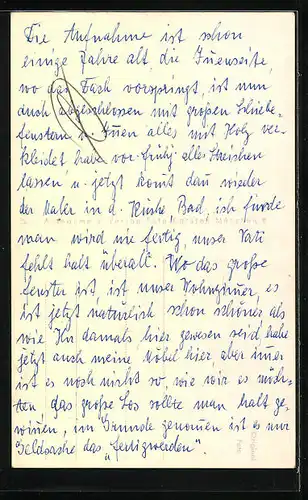 Die Aufnahme ist schon
einige Jahre alt, die Innenseite,
wo das Dach vorspringt, ist nun
auch abgeschlossen mit großen Schiebe-
fenstern u. Innen alles mit Holz ver-
kleidet habe vor. Frühj. alles Streichen
lassen u. jetzt komt dan wieder
der Maler in d. Küche Bad, ich finde
man wird nie fertig, unser Vati
fehlt halt überall. Wo das große
fenster ist, ist unser Wohnzimer, es
ist jetzt natürlich schon schöner als
wie Ihr damals hier gewesen seid, habe
jetzt auch meine Möbel hier aber imer
ist es noch nicht so, wie wir es möch-
ten, das große Los sollte man halt ge-
winen, im Grunde genomen ist es nur
Geldsache das „fertigwerden".